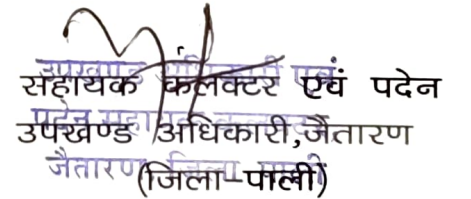 सहायक कलक्टर एवं पदेन
उपखण्ड अधिकारी,जैतारण
(जिला-पाली)